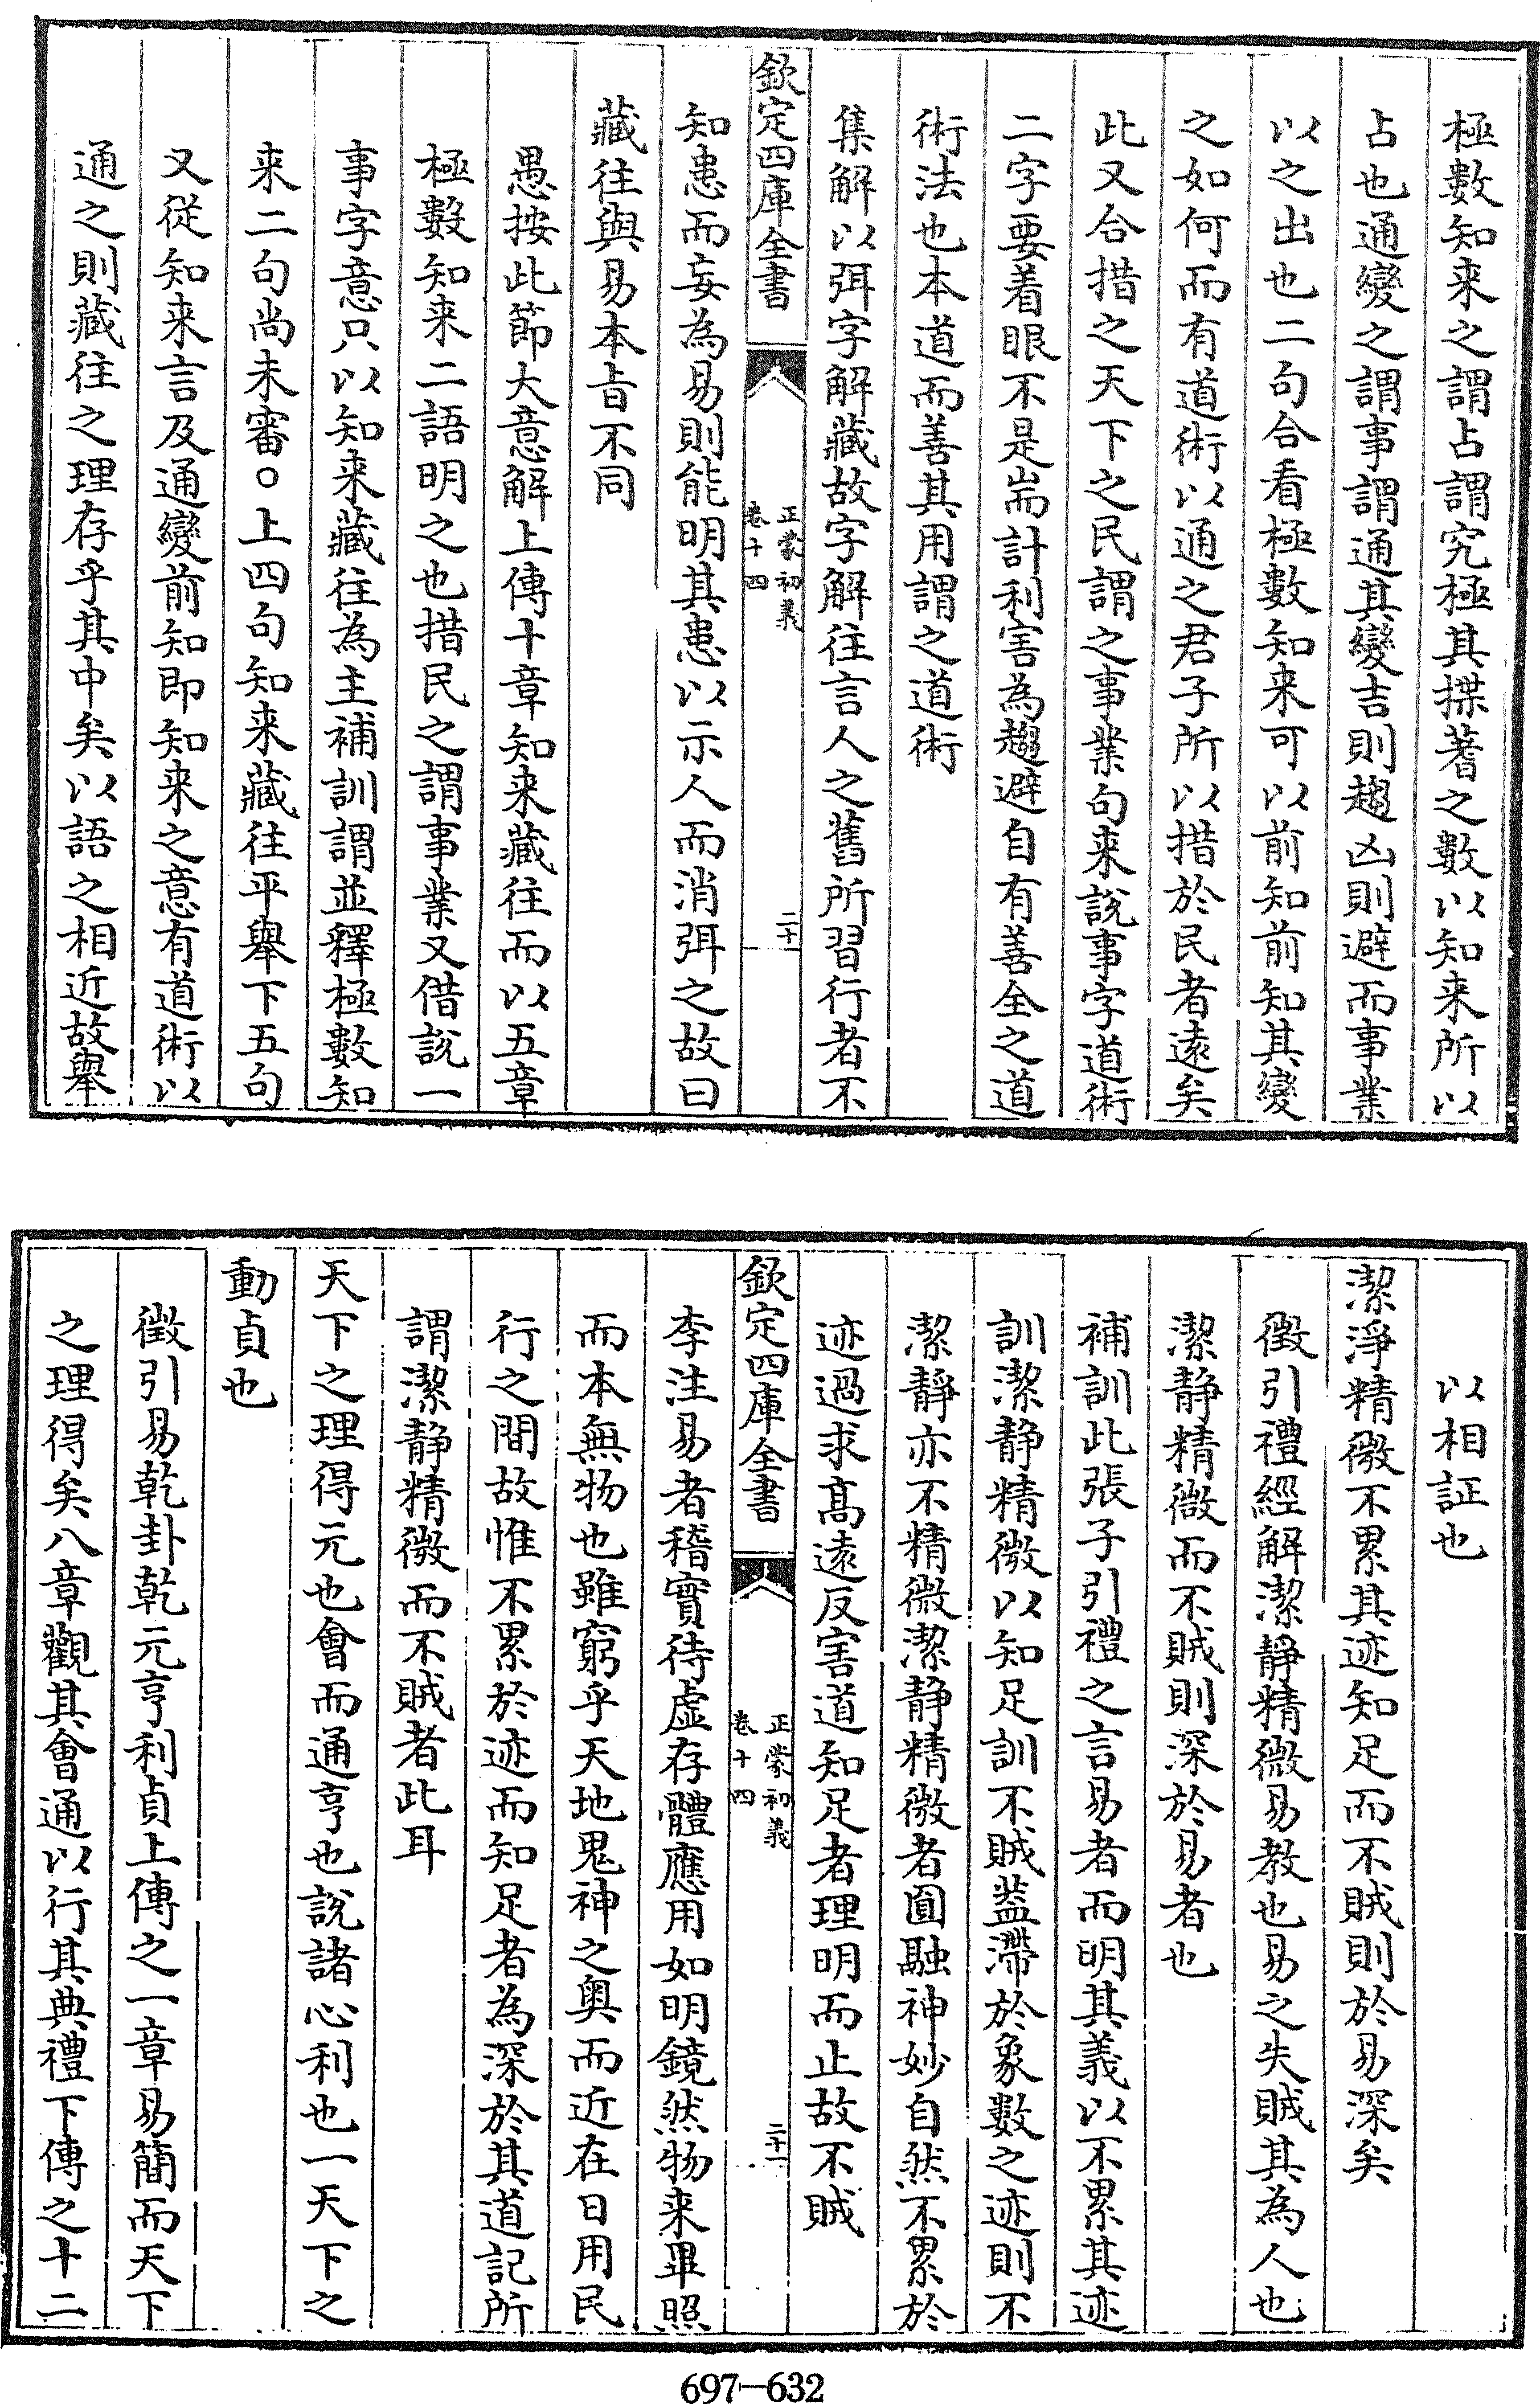 極數知来之謂占謂究極其揲蓍之數以知来所以
占也通變之謂事謂通其變吉則趨凶則避而事業
以之出也二句合看極數知来可以前知前知其變
之如何而有道術以通之君子所以措於民者遠矣
此又合措之天下之民謂之事業句来說事字道術
二字要着眼不是耑計利害為趨避自有善全之道
術法也本道而善其用謂之道術
集解以弭字解藏故字解往言人之舊所習行者不
欽定四庫全書
正蒙初義
卷十四
二十
知患而妄為易則能明其患以示人而消弭之故曰
藏往與易本旨不同
愚按此節大意解上傳十章知来藏往而以五章
極數知来二語明之也措民之謂事業又借說一
事字意只以知来藏往為主補訓謂並釋極數知
来二句尚未審○上四句知来藏往平舉下五句
又從知来言及通變前知即知来之意有道術以
通之則藏往之理存乎其中矣以語之相近故舉
以相証也
潔淨精微不累其迹知足而不賊則於易深矣
徵引禮經解潔靜精微易教也易之失賊其為人也
潔靜精微而不賊則深於易者也
補訓此張子引禮之言易者而明其義以不累其迹
訓潔静精微以知足訓不賊葢滯於象數之迹則不
潔靜亦不精微潔静精微者圓融神妙自然不累於
迹過求高遠反害道知足者理明而止故不賊
欽定四庫全書
正蒙初義
卷十四
二十一
李注易者稽實待虛存體應用如明鏡然物来畢照
而本無物也雖窮乎天地鬼神之奥而近在日用民
行之間故惟不累於迹而知足者為深於其道記所
謂潔静精微而不賊者此耳
天下之理得元也會而通亨也說諸心利也一天下之
動貞也
徵引易乾卦乾元亨利貞上傳之一章易簡而天下
之理得矣八章觀其會通以行其典禮下傳之十二
697-632